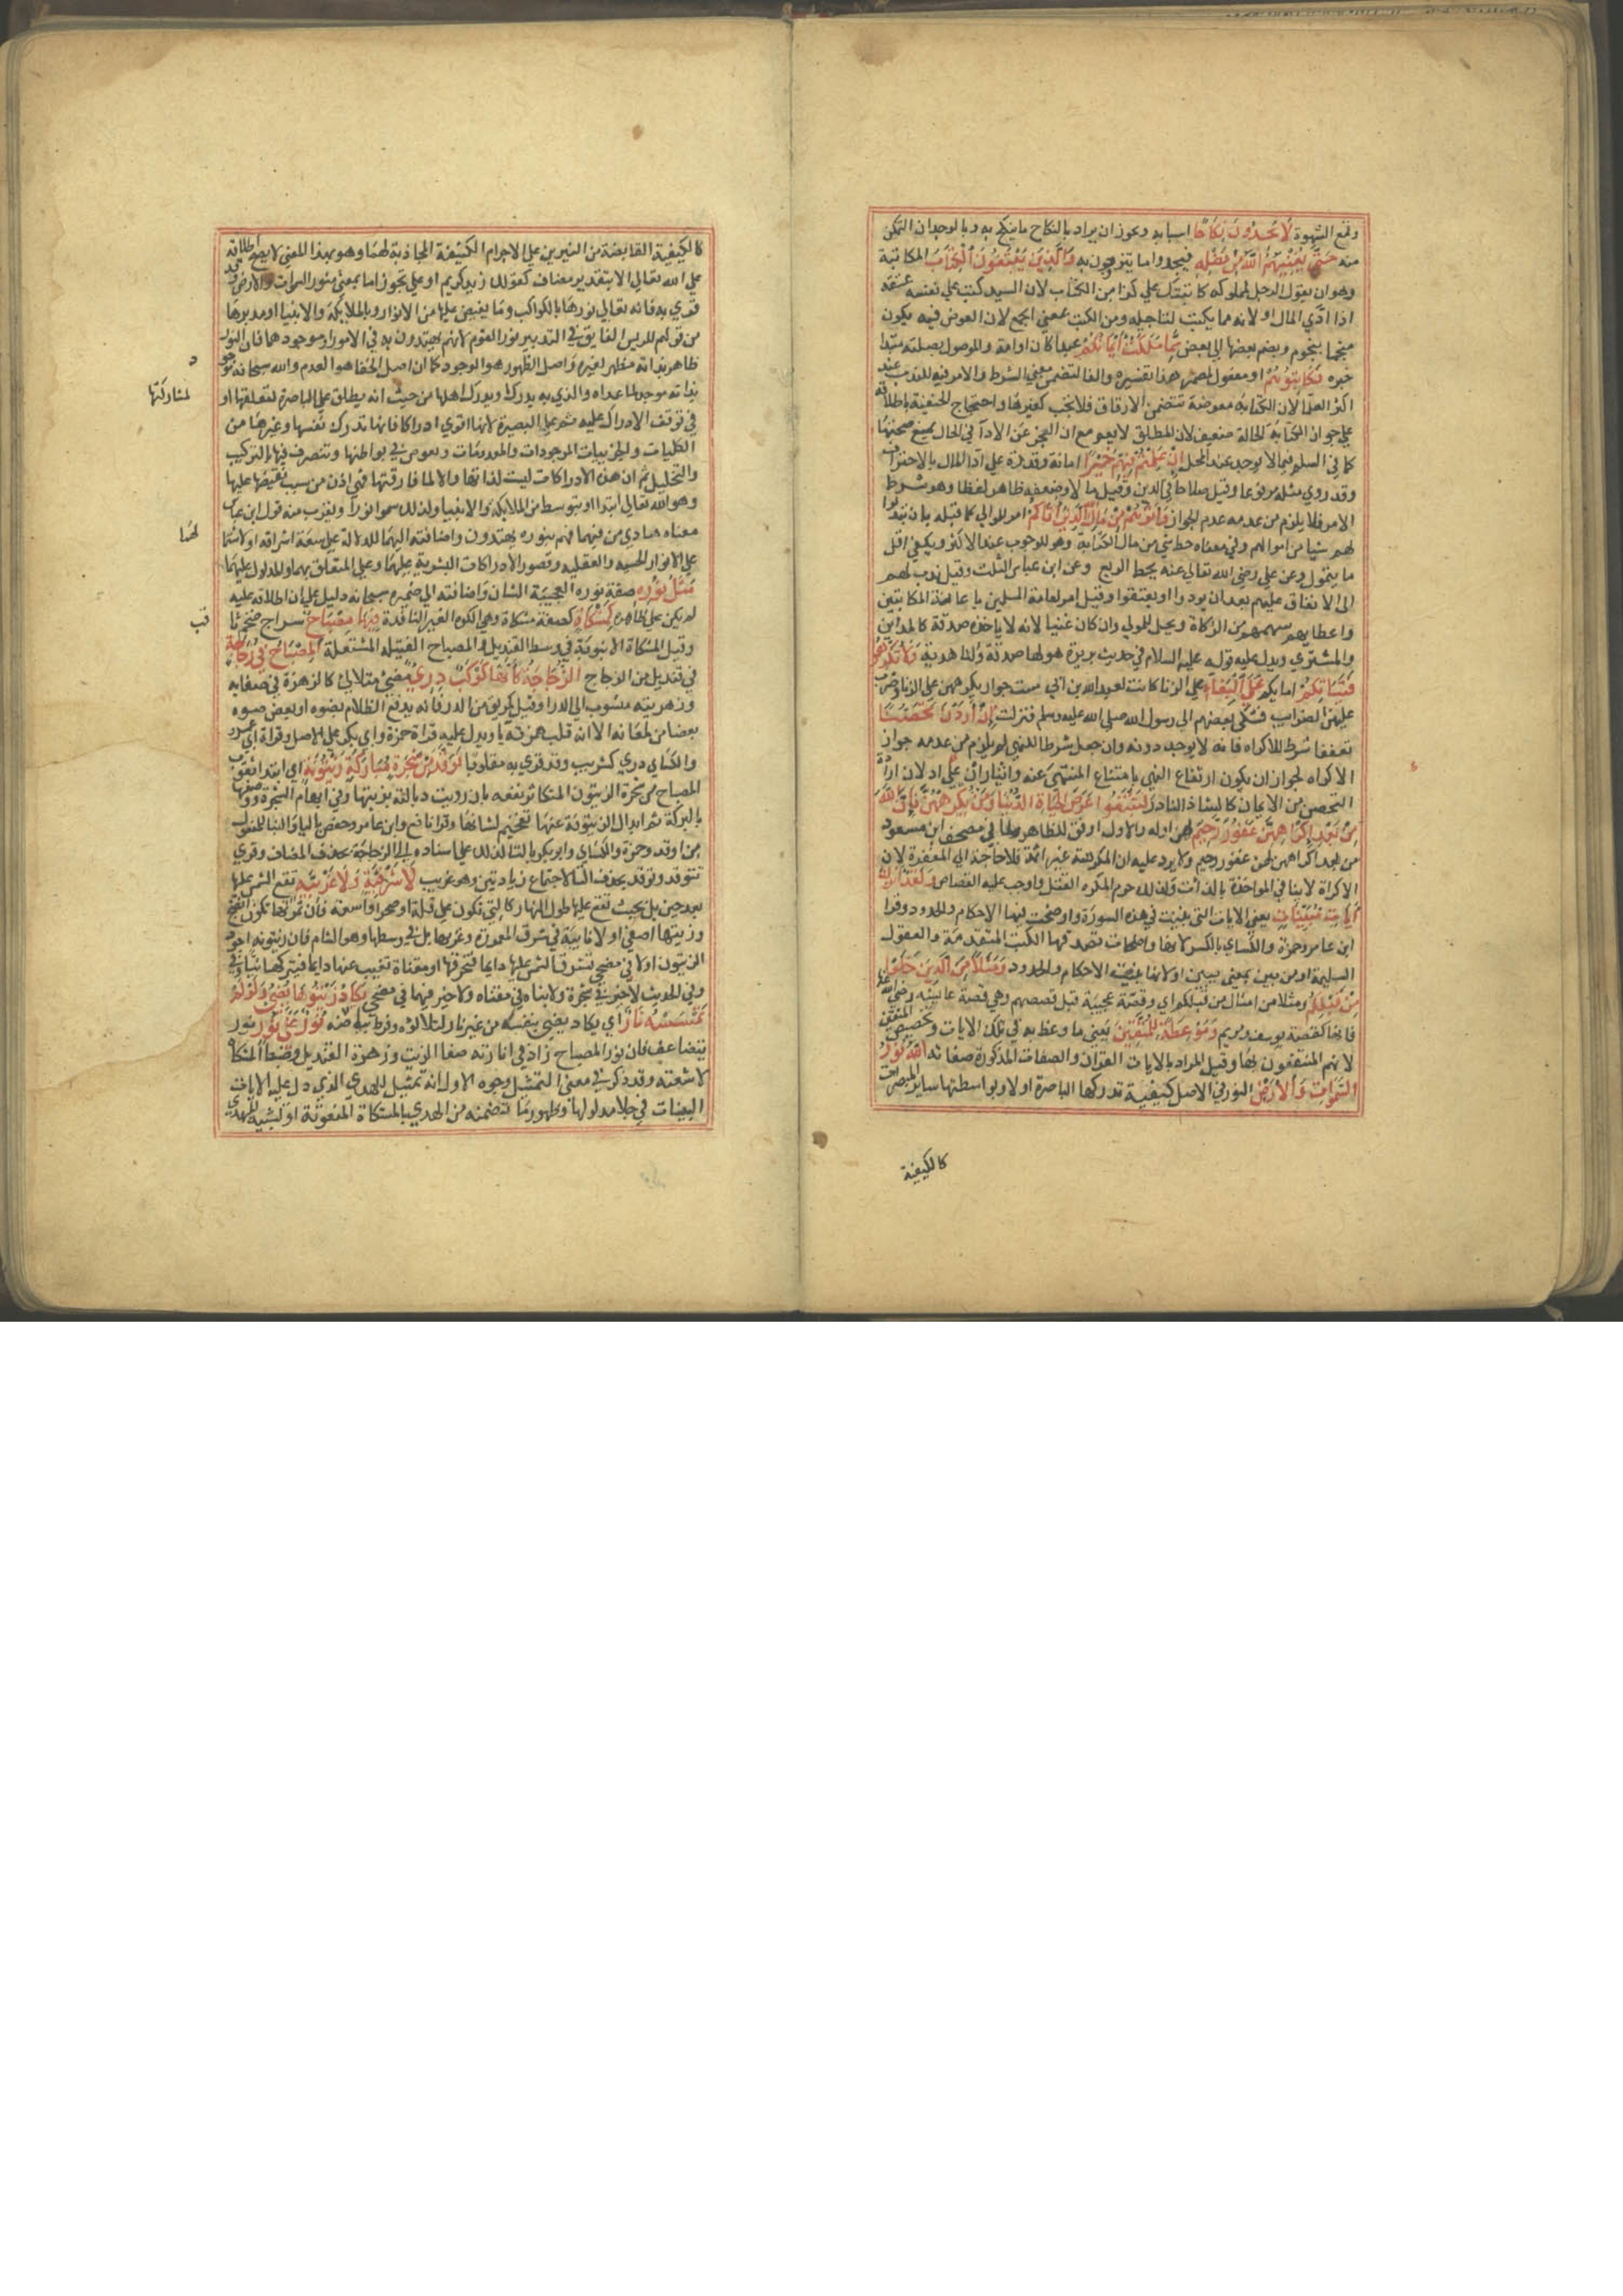 وقمع الشهوة لَا يَجِدُونَ نِكَاحًا اسبابه ويجوز ان يراد بالنكاح ما ينكح به وبالوجدان التمكن
منه حَتَّى يُغْنِيَهُمُ اللَّهُ مِنْ فَضْلِهِ فيجدوا ما يتزوجون به وَالَّذِينَ يَبْتَغُونَ الْكِتَابَ المكاتبة
وهو ان يقول الرجل لمملوكه كاتبتك على كذا من الكتاب لان السيد كتب على نفسه عتقه
اذا ادي المال او لانه مما يكتب لتاجيله ومن الكتب بمعني الجمع لان العوض فيه يكون
منجما بنجوم يضم بعضها الى بعض مِمَّا مَلَكَتْ أَيْمَانُكُمْ عبدا كان او امة والموصول بصلته مبتدا
خبره فَكَاتِبُوهُمْ او مفعول لمضمر هذا تفسيره والفا لتضمن معني الشرط والامر فيه للندب عند
اكثر العلما لان الكتابة معوضة تتضمن الارقاق فلا تجب كغيرها واحتجاج الحنفية باطلاقه
على جواز الكتابة الحالة ضعيف لان المطلق لا يعم مع ان العجز عن الادا في الحال يمنع صحتها
كما في السلم فيما لا يوجد عند المحل اِنْ عَلِمْتُمْ فِيهِمْ خَيْرًا امانة وقدرة على ادا المال بالاحتراف
وقد روي مثله مرفوعا وقيل صلاحا في الدين وقيل مالا وضعفه ظاهر لفظا وهو شرط
الامر فلا يلزم من عدمه عدم الجواز وَآتُوهُمْ مِنْ مَالِ اللَّهِ الَّذِي آتَاكُمْ امر للموالي كما قبله بان يبذلوا
لهم شيا من اموالهم وفي معناه حط شي من مال الكتابة وهو للوجوب عند الاكثر ويكفي اقل
ما يتمول وعن علي رضي الله تعالى عنه يحط الربع وعن ابن عباس الثلث وقيل ندب لهم
الى الانفاق عليهم بعد ان يودوا ويعتقوا وقيل امر لعامة المسلمين باعانة المكاتبين
واعطايهم سهمهم من الزكاة ويحل للمولي وان كان غنيا لانه لا ياخذه صدقة كالداين
والمشتري ويدل عليه قوله عليه السلام في حديث بريرة هو لها صدقة ولنا هدية وَلَا تُكْرِهُوا
فَتَيَاتِكُمْ امايكم عَلَى الْبِغَاءِ على الزنا كانت لعبد الله بن ابي ست جوار يكرههن على الزنا وضرب
عليهن الضرايب فشكى بعضهم الى رسول الله صلى الله عليه وسلم فنزلت اِنْ أَرَدْنَ تَحَصُّنًا
تعففا شرط للاكراه فانه لا يوجد دونه وان جعل شرطا للنهي لم يلزم من عدمه جواز
الاكراه لجواز ان يكون ارتفاع النهي بامتناع المنتهي عنه وايثار ان على اذ لان ارادة
التحصن من الاماء كالشاذ النادر لِتَبْتَغُوا عَرَضَ الْحَيَاةِ الدُّنْيَا وَمَنْ يُكْرِهْهُنَّ فَإِنَّ اللَّهَ
مِنْ بَعْدِ إِكْرَاهِهِنَّ غَفُورٌ رَحِيمٌ لهن اوله والاول اوفق للظاهر ولما في مصحف ابن مسعود
من بعد اكراههن لهن غفور رحيم ولا يرد عليه ان المكرهة غير اثمة فلا حاجة الى المغفرة لان
الاكراه لا ينافي المواخذة بالذات ولذلك حرم المكره القتل واوجب عليه القصاص وَلَقَدْ أَنْزَلْنَا إِلَيْكُمْ
آيَاتٍ مُبَيِّنَاتٍ يعني الايات التي بينت في هذه السورة واوضحت فيها الاحكام والحدود وقرا
ابن عامر وحمزة والكساي بالكسر لانها واضحات تصدقها الكتب المتقدمة والعقول
السليمة او من بين بمعنى تبين او لانها بينت الاحكام والحدود وَمَثَلًا مِنَ الَّذِينَ خَلَوْا
مِنْ قَبْلِكُمْ ومثلا من امثال من قبلكم اي وقصة عجيبة قبل قصصهم وهي قصة عايشة رضي الله عنها
فانها كقصة يوسف ومريم وَمَوْعِظَةً لِلْمُتَّقِينَ يعني ما وعظ به في تلك الايات وتخصيص المتقين
لانهم المنتفعون بها وقيل المراد بالايات القران والصفات المذكورة صفاته اللَّهُ نُورُ
السَّمَوَاتِ وَالْأَرْضِ النور في الاصل كيفية تدركها الباصرة اولا وبواسطتها ساير المبصرات
كالكيفية
كالكيفية الفايضة من النيرين على الاجرام الكثيفة المحاذية لهما وهو بهذا المعنى لا يصح اطلاقه
على الله تعالى الا بتقدير مضاف كقولك زيد كريم او على تجوز اما بمعنى منور السموات والارض وقد
قري به فانه تعالى نورها بالكواكب وما يفيض عليها من الانوار وبالملايكة والانبيا او مدبرها
من قولهم للرييس الفايق في التدبير نور القوم لانهم يهتدون به في الامور او موجدها فان النور
ظاهر بذاته مظهر لغيره واصل الظهور هو الوجود كما ان اصل الخفا هو العدم والله سبحانه موجود
بذاته موجد لما عداه والذي به يدرك او يدرك اهلها من حيث انه يطلق على الباصرة لتعلقها او
لمشاركتها
في توقف الادراك عليه ثم على البصيرة لانها اقوي ادراكا فانها تدرك نفسها وغيرها من
الكليات والجزييات الموجودات والمعدومات وتغوص في بواطنها وتتصرف فيها بالتركيب
والتحليل ثم ان هذه الادراكات ليست لذاتها والا لما فارقتها فهي اذن من سبب يفيضها عليها
وهو الله تعالى ابتدا او بتوسط من الملايكة والانبيا ولذلك سموا نورا ويقرب منه قول ابن عباس
معناه هادي من فيهما فهم بنوره يهتدون واضافته اليهما للدلالة على سعة اشراقه او لاشتما
لهما
على الانوار الحسية والعقلية وقصور الادراكات البشرية عليهما وعلى المتعلق بهما والمدلول عليهما
مَثَلُ نُورِهِ صفة نوره العجيبة الشان واضافته الى ضميره سبحانه دليل على ان اطلاقه عليه
لم يكن على ظاهره كَمِشْكَاةٍ كصفة مشكاة وهي الكوة الغير النافذة فِيهَا مِصْبَاحٌ سراج ضخم ثا
قب
وقيل المشكاة الانبوبة في وسط القنديل والمصباح الفتيلة المشتعلة الْمِصْبَاحُ فِي زُجَاجَةٍ
في قنديل من الزجاج الزُّجَاجَةُ كَأَنَّهَا كَوْكَبٌ دُرِّيٌّ مضي متلالي كالزهرة في صفايه
وزهريته منسوب الى الدر او فعيل كمريق من الدر فانه يدفع الظلام بضوه او بعض ضوه
بعضا من لمعانه الا انه قلب همزته يا ويدل عليه قراة حمزة وابي بكر على الاصل وقراة ابي عمرو
والكساي دري كشريب وقد قري به مقلوبا تُوقَدُ مِنْ شَجَرَةٍ مُبَارَكَةٍ زَيْتُونَةٍ اي ابتدا ثقوب
المصباح من شجرة الزيتون المتكاثر نفعه بان رويت ذبالته بزيتها وفي ابهام الشجرة ووصفها
بالبركة ثم ابدال الزيتونة عنها تفخيم لشانها وقرا نافع وابن عامر وحفص باليا والبنا للمفعول
من اوقد وحمزة والكساي وابو بكر بالتا كذلك على اسناده الى الزجاجة بحذف المضاف وقري
تتوقد وتوقد بحذف التا لاجتماع زيادتين وهو غريب لَا شَرْقِيَّةٍ وَلَا غَرْبِيَّةٍ تقع الشمس عليها
بعد حين بل بحيث تقع عليها طول النهار كالتي تكون على قلة او صحرا واسعة فان ثمرتها تكون انضج
وزيتها اصفي او لا نابتة في شرق المعمورة وغربها بل في وسطها وهو الشام فان زيتونه اجود
الزيتون او لا في مضحى تشرق الشمس عليها دايما فتحرقها او مقناة تغيب عنها دايما فتتركها نيا وفي
وفي الحديث لا خير في شجرة ولا نبات في مقناة ولا خير فيهما في مضحى يَكَادُ زَيْتُهَا يُضِيءُ وَلَوْ لَمْ
تَمْسَسْهُ نَارٌ اي يكاد يضي بنفسه من غير نار لتلالؤه وفرط وبيصه نُورٌ عَلَى نُورٍ نور
يتضاعف فان نور المصباح زاد في انارته صفا الزيت وزهرة القنديل وضبط المشكاة
لاشعته وقد ذكر في معنى التمثيل وجوه الاول انه تمثيل للهدى الذي دل عليه الايات
البينات في جلا مدلولها وظهور ما تضمنه من الهدى بالمشكاة المنعوتة او تشبيه للهدى